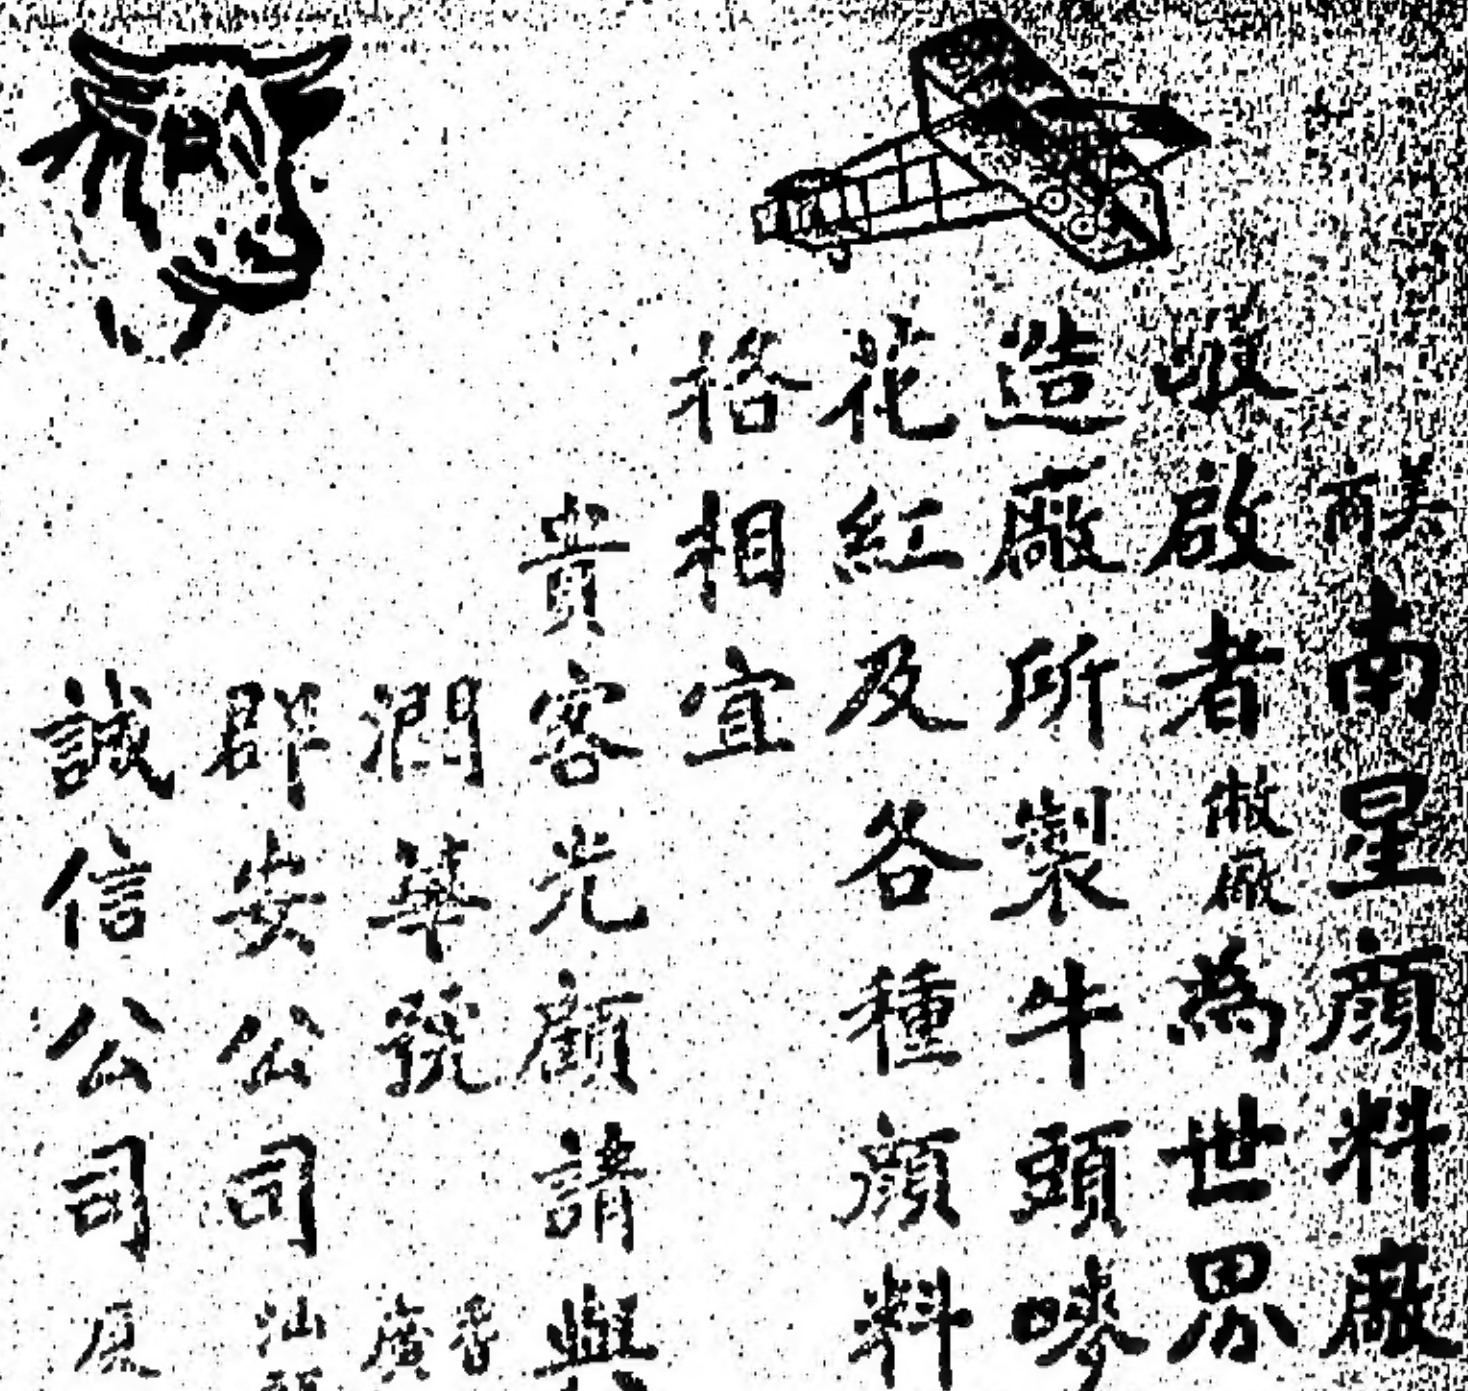 美商南星顏料廠
敬啟者敝廠為世界
造廠所製牛頭嘜
花紅及各種顏料
格相宜
貴客光顧請與
潤華號香廣
郡安公司汕
誠信公司厦